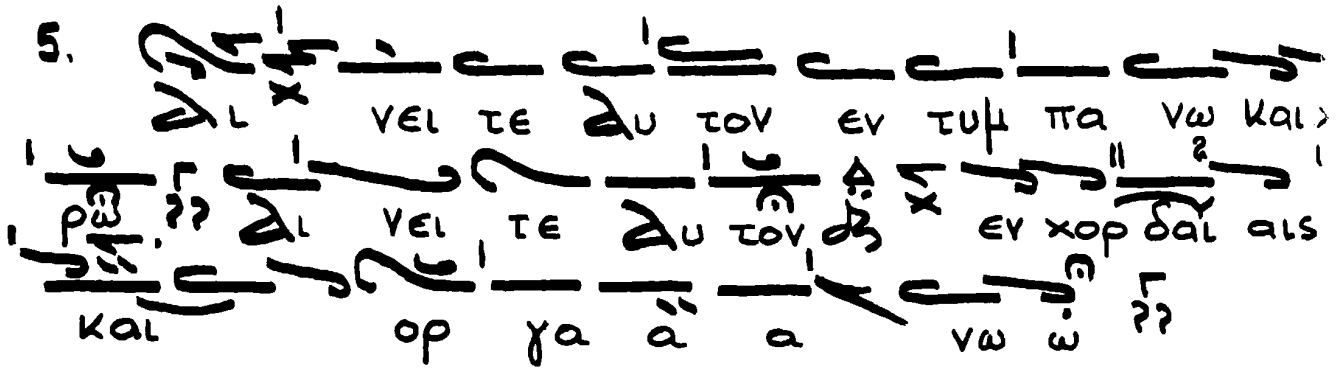 5. Αι νει τε Αυ τον εν τυμ πα νω και χ
ρω Αι νει τε Αυ τον εν χορ δαι αις
και ορ γα α α νω ω